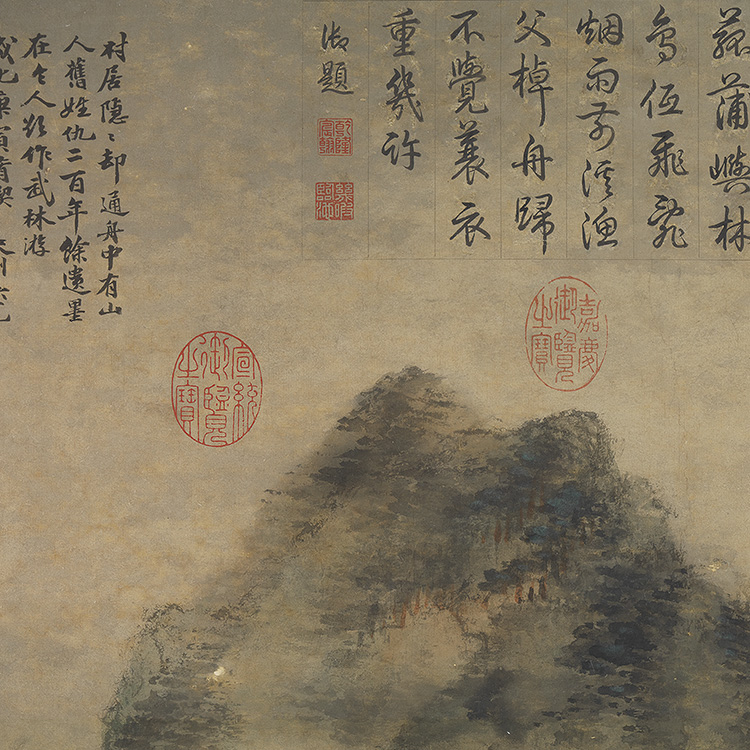 菰蒲嶼林
烟雨前溪漁
父棹舟歸
不覺蓑衣
重幾許
御題
乾隆宸翰
嘉慶御覽之寶
宣統御覽之寶
村居隱〻却通舟中有山
人舊姓仇二百年餘遺墨
在令人欲作武林游
成化庚寅